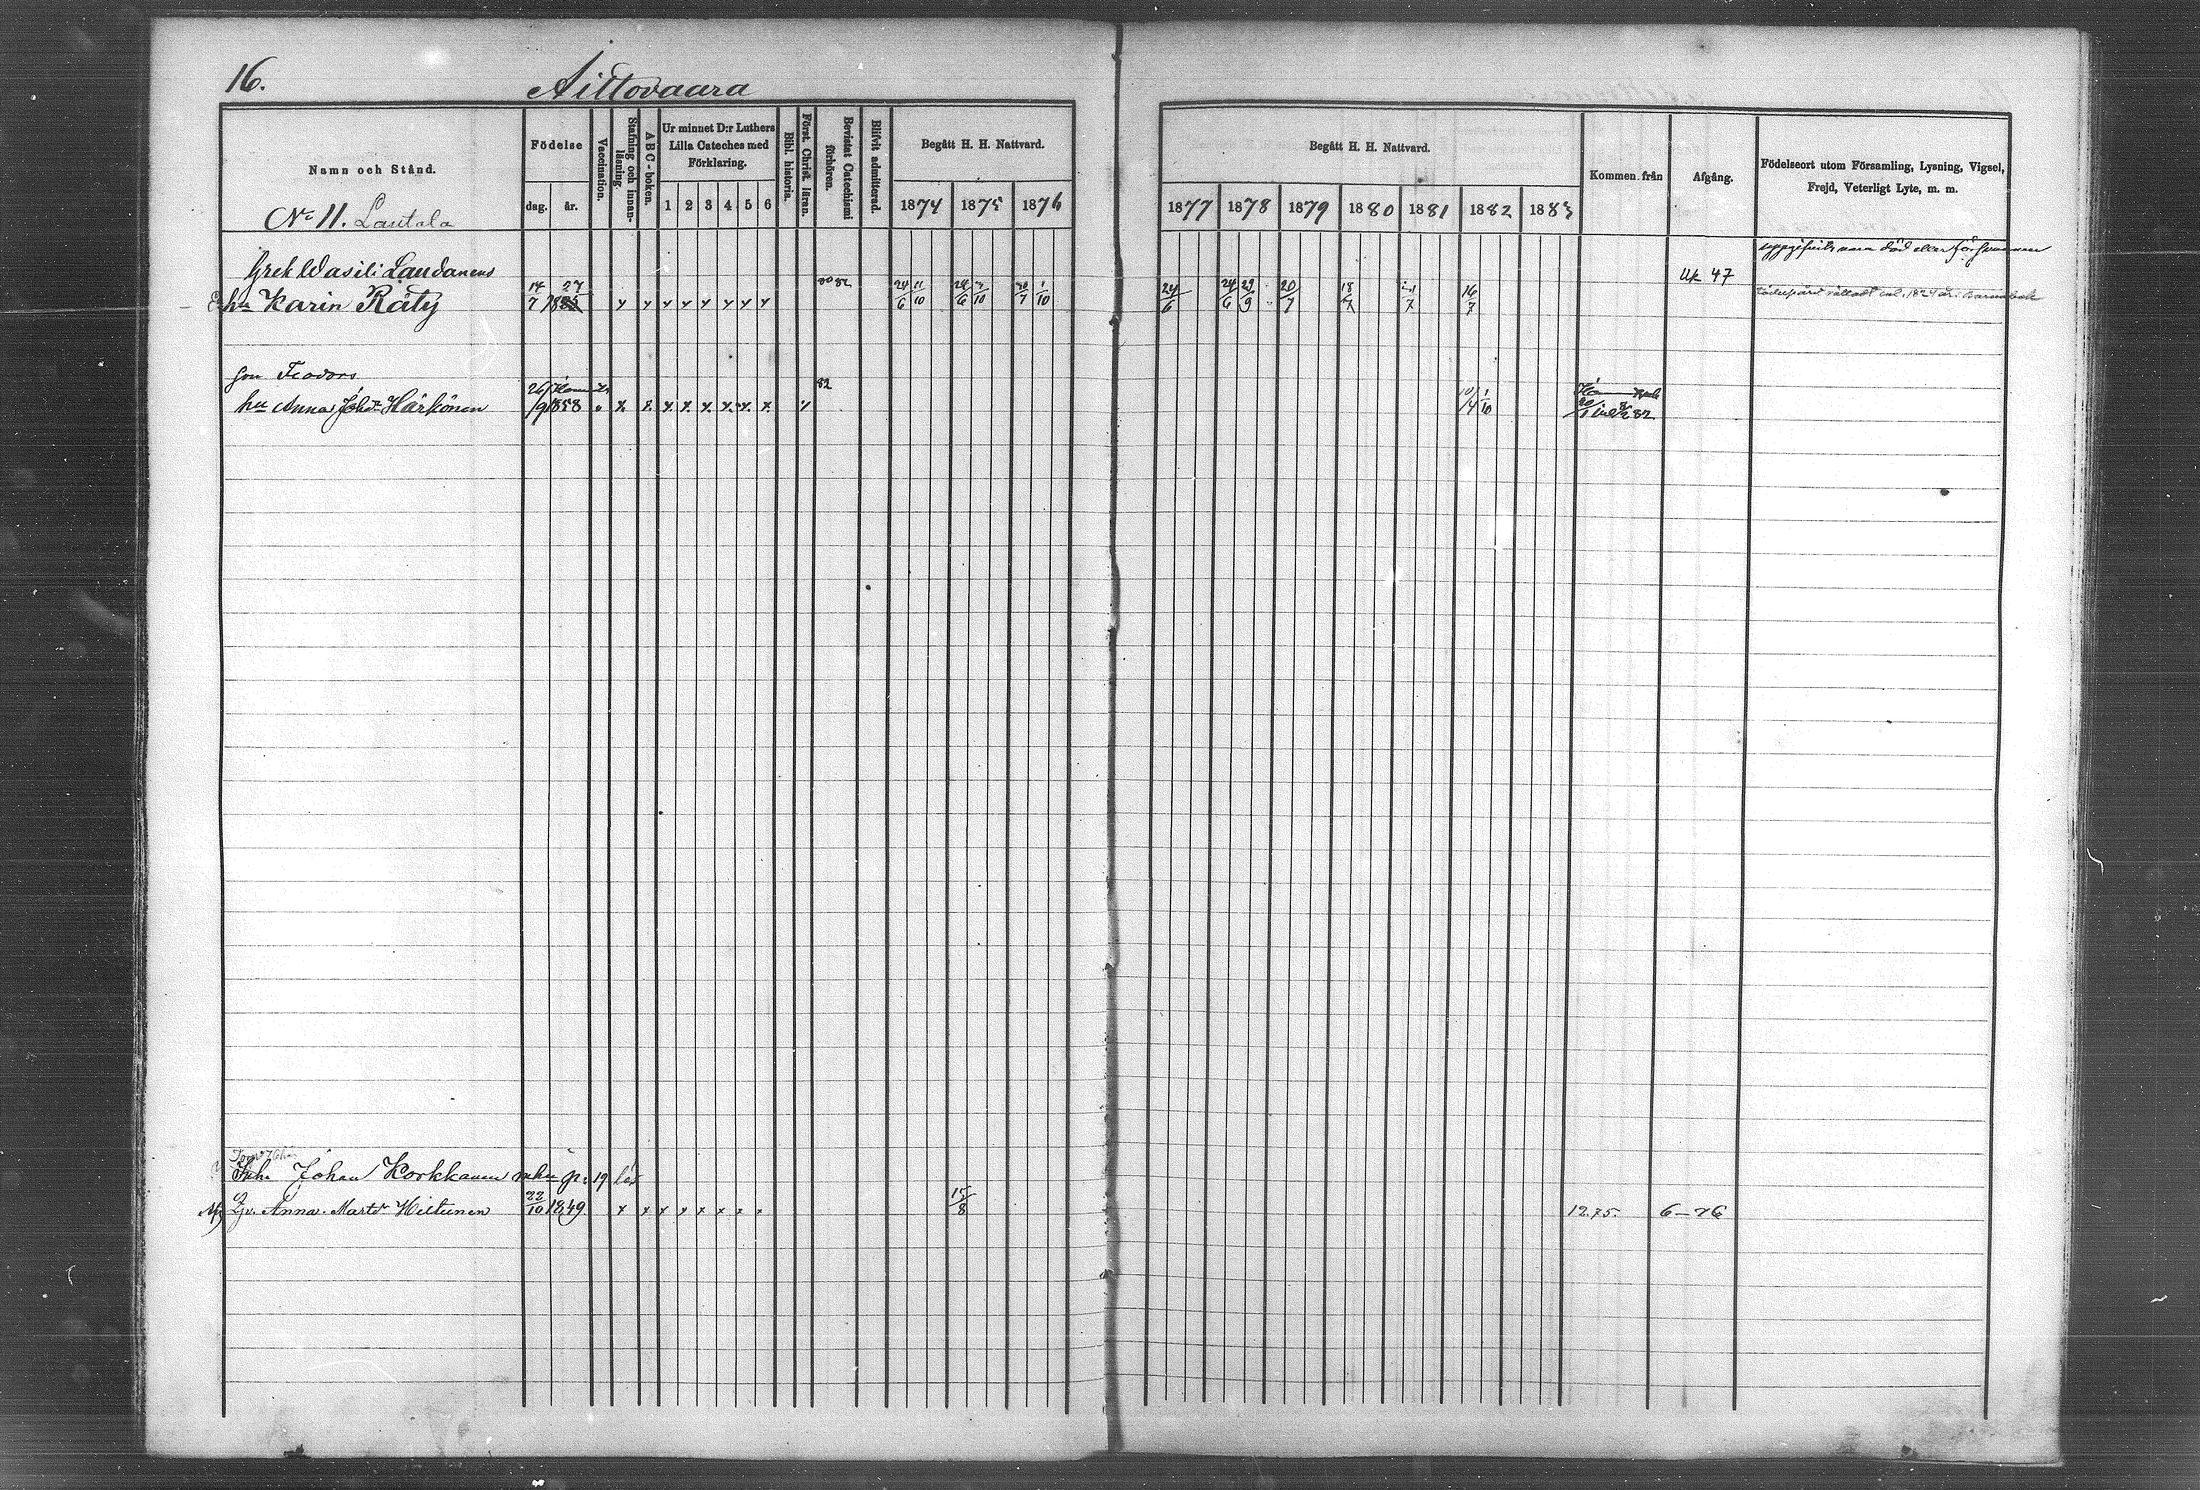 16.
Aittovaara
Namn och Stånd.
Födelse
dag.
år.
Vaccination.
Stafning och innanläsning
A B C-boken.
Ur minnet D:r Luthers
Lilla Cateches med
Förklaring.
1 2 3 4 5 6
Bibl. historia.
Först. Christ. läran.
Bevistat Catechismi förhören.
Blifvit admitterad.
Begått H. H. Nattvard.
1874 1875 1876
Begått H. H. Nattvard.
1877 1878 1879 1880 1881 1882 1883
Kommen från
Afgång.
Födelseort utom Församling, Lysning, Vigsel,
Frejd, Veterligt Lyte, m. m.
No 11. Lautala
Grek Wasili Laudanens
Uk 47
hu Karin Räty 14/7 27 80 82 24/6 11/10 24/6 /10 /7 1/10 24/6 24/6 29/9 20/7 18/7 /7 16/7
son Feodors
hu Anna Johdr Härkönen 26/9 1858 82 1/10 82
Johan Korkkanen p. 19
Anna Martdr Hiltunen 22/10 1849 15/8 12.75. 6-76